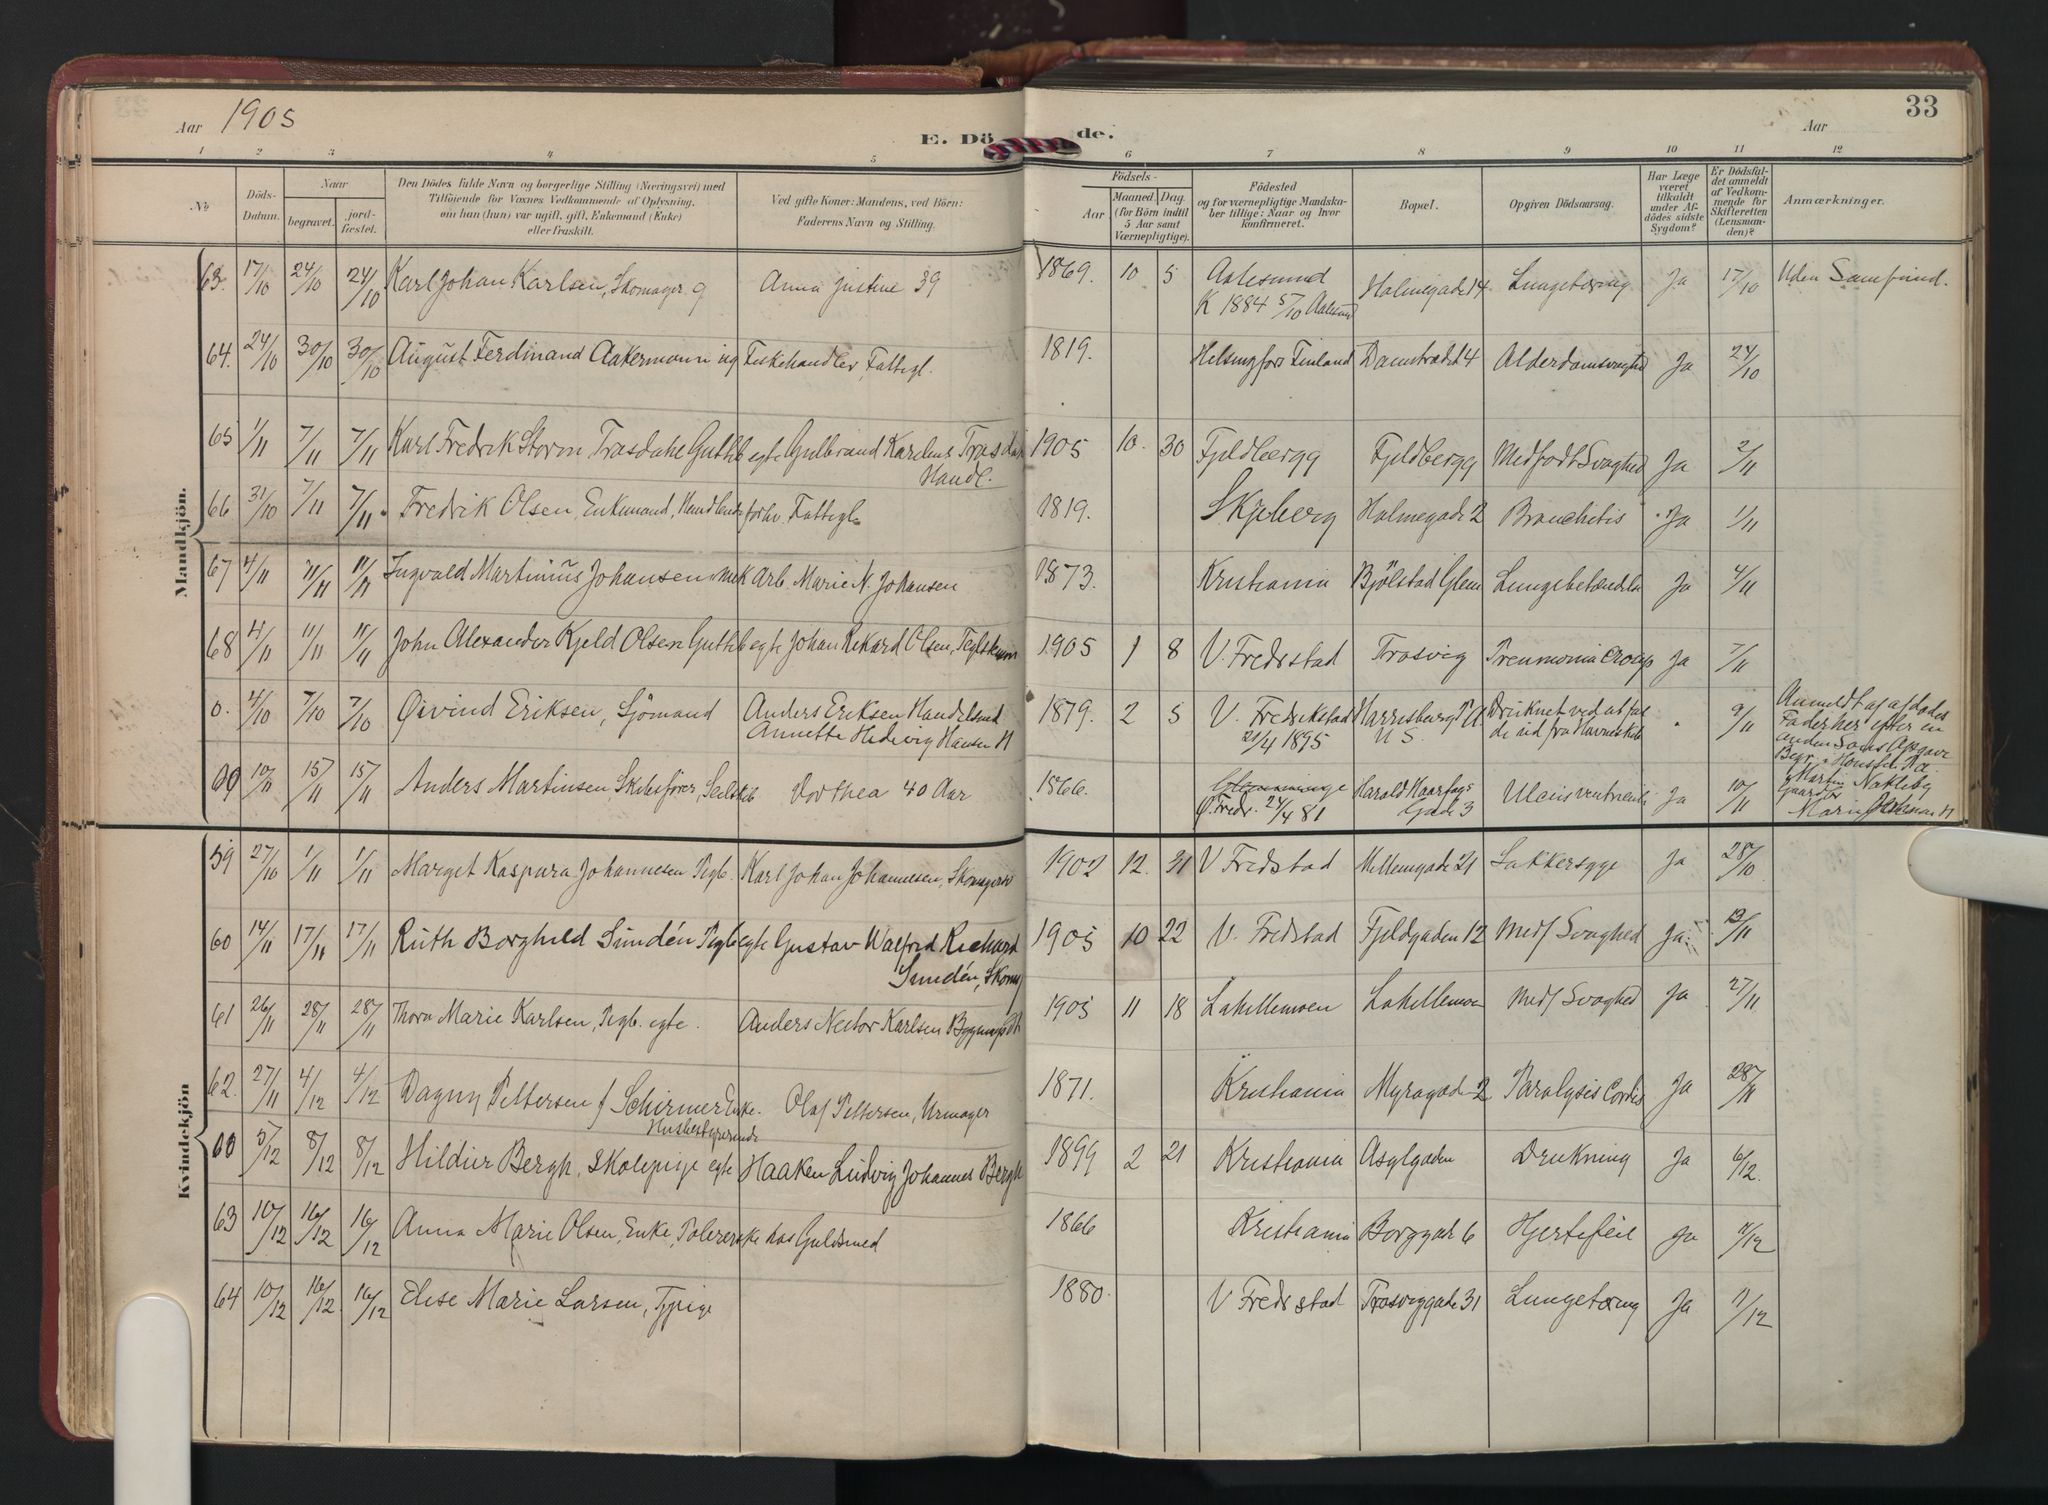 Aar 1905
E. Dö de.
33
Aar
1 2 3 4 5 6 7 8 9 10 11 12
No
Döds-Datum.
Naar
begravet.
jord-fæstet.
Den Dödes fulde Navn og borgerlige Stilling (Næringsvei) med
Tilföiende for Voxnes Vedkommende af Oplysning,
om han (hun) var ugift, gift, Enkemand (Enke)
eller fraskilt.
Ved gifte Koner: Mandens, ved Börn:
Faderens Navn og Stilling.
Födsels-
Aar
Maaned. Dag.
(for Börn indtil
5 Aar samt
Værnepligtige).
Födested
og for værnepligtige Mandska-
ber tillige: Naar og hvor
konfirmeret.
Bopæl.
Opgiven Dödsaarsag.
Har Læge
været
tilkaldt
under Af-
dödes sidste
Sygdom?
Er Dödsfal-
det anmeldt
af Vedkom-
mende for
Skifteretten
(Lensman-
den)?
Anmærkninger.
Mandkjön.
63. 17/10 24/10 24/10 Karl Johan Karlsen, Skomager g Anna Justine 39 1869 10 5 Aalesund Holmegade 14 Ja 17/10 Uden Samfund.
K 1884 5/10 Aalesund
64. 24/10 30/10 30/10 August Ferdinand Aakermann ug Fiskehandler, Fattigl. 1819. Helsingfors Finland Damstrædet 4 Alderdomsvaghed Ja 24/10
65 1/11 7/11 7/11 Karl Fredrik Storm Trasdahl Guttb egte Gulbrand Karelius 1905 10. 30 Fjeldbergg Fjeldbergg Medfødt Svaghed Ja 2/11
Handl.
66 31/10 7/11 7/11 Fredrik Olsen, Enkemand, Handlende forhv. Fattigl 1819. Skjeberg Holmegade 2 Bronchitis Ja 1/11
67 4/11 11/11 11/11 Ingvald Martinius Johansen Arb. Marie N. Johansen 1873. Kristiania Bjölstad Glem Lungebetændelse Ja 4/11
68 4/11 11/11 11/11 John Alexander Kjeld Olsen Guttb egte Johan Rikard Olsen, 1905 1 8 V. Fredrstad Trosvig Pneumonia croup Ja 7/11
0. 4/10 7/10 7/10 Øivind Eriksen, Sjömand Anders Eriksen Handelsmd 1879 2 5 V. Fredrikstad Druknet ved at fal- " 9/11 Anmeldt af afdødes
Annette Hedevig Hansen 21/4 1895 U S. de ud fra Fader her efter en
anden Søns Opgave
69 10/11 15/11 15/11 Anders Martinsen, Skibsfører, Dorthea 40 Aar 1866. Harald Haarfags Ulcus ventriculi Ja 10/11 Martin Nakleby
Ø. Fredr. 24/4 81 Gade 3 Gaardbr
Kvindekjön
59 27/10 1/11 1/11 Marget Kaspara Johannesen Pigb. Karl Johan Johannesen, 1902 12. 31 V Fredstad Mellemgade 21 Sukkersyge Ja 28/10
60 14/11 17/11 17/11 Ruth Borghild Sundén Pigb egte Gustav Walfrid Richard 1905 10 22 V. Fredstad Fjeldgaden 12 Medf Svaghed Ja. 13/11
Sundén, Skomg
61 26/11 28/11 28/11 Thora Marie Karlsen, Pigb. egte. Anders Nector Karlsen 1905 11 18 Lahellemoen Lahellemoen Medf Svaghed Ja 27/11
62. 27/11 4/12 4/12 Dagny Pettersen f Schirmer Enke. Olaf Pettersen, Urmager 1871. Kristiania Myragade 2 Paralysis Cordis Ja 28/11
Husbestyrerinde
00 5/12 8/12 8/12 Hildur Bergh, Skolepige egte Haaken Ludvig Johannes Bergh 1899 2 21 Kristiania Asylgaden Drukning Ja 6/12.
63 10/12 16/12 16/12 Anna Marie Olsen, Enke, Polererske hos Guldsmed 1866 Kristiania Borggade 6 Hjertefeil Ja 11/12
64 10/12 16/12 16/12 Elise Marie Larsen, Tjpige 1880. V Fredrstad Trosviggade 31 Lungetæring Ja 11/12